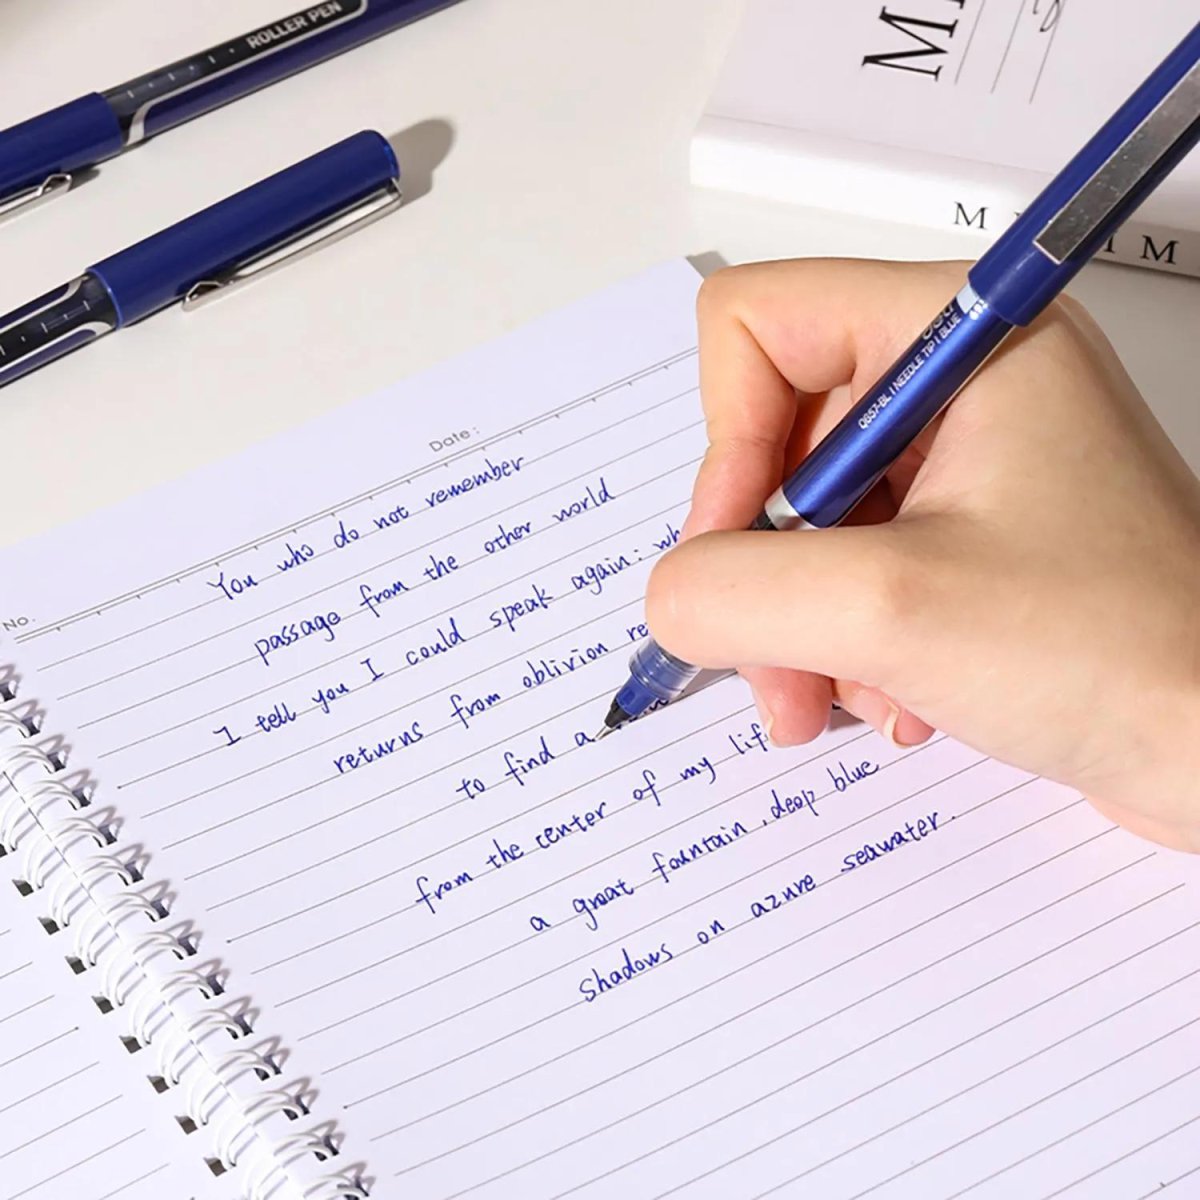 ROLLER PEN
M
M M
Q657-BL | NEEDLE TIP | BLUE
Date:
No.
You who do not remember
passage from the other world
I tell you I could speak again:
returns from oblivion
to find a
from the center of my
a great fountain, deep blue
shadows on azure seawater.